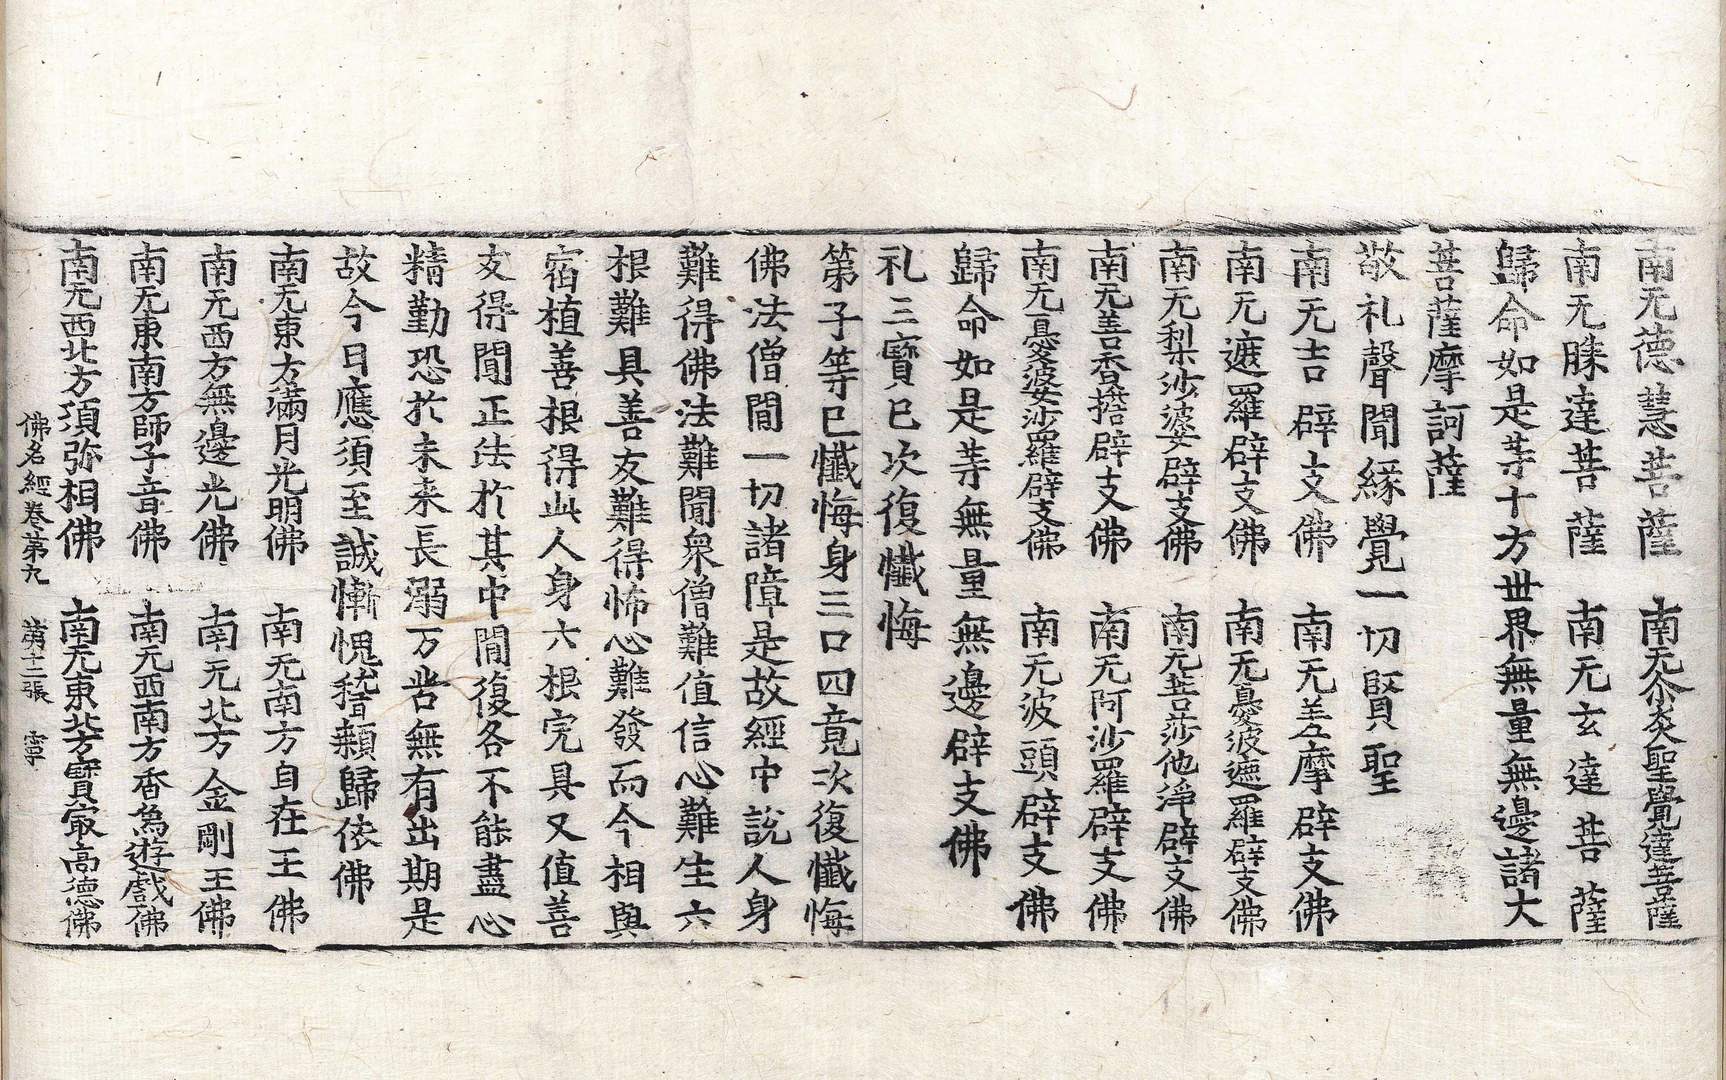 南无德慧菩薩 南无尒炎聖覺達菩薩
南无䏻達菩薩 南无玄達菩薩
歸命如是等十方世界無量無邊諸大
菩薩摩訶薩
敬礼聲聞緣覺一切賢聖
南无吉辟支佛 南无善摩辟支佛
南无遮羅辟支佛 南无憂波遮羅辟支佛
南无梨沙婆辟支佛 南无菩莎他淨辟支佛
南无善香擔辟支佛 南无阿沙羅辟支佛
南无憂婆沙羅辟支佛 南无波頭辟支佛
歸命如是等無量無邊辟支佛
礼三寶已次復懺悔
第子等已懺悔身三口四竟次復懺悔
佛法僧間一切諸障是故經中說人身
難得佛法難聞衆僧難值信心難生六
根難具善友難得怖心難發而今相與
宿植善根得此人身六根完具又值善
友得聞正法於其中間復各不能盡心
精勤恐於未来長溺万苦無有出期是
故今日應須至誠慚愧稽顙歸依佛
南无東方滿月光明佛 南无南方自在王佛
南无西方無邊光佛 南无北方金剛王佛
南无東南方師子音佛 南无西南方香烏遊戲佛
南无西北方須弥相佛 南无東北方寶㝡高德佛
佛名經卷第九 第十二張 寧